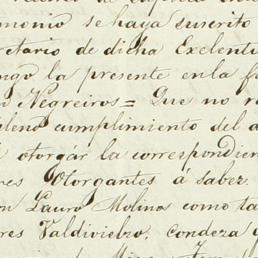 monio se haya suscrito
retario de dicha Exelenti
ngo la presente en la f
n Negreiros = Que no r
pleno cumplimiento del a
otorgár la correspondien
res Otorgantes á saber.
on Lauro Molina como ta
res Valdivielzo, condeza